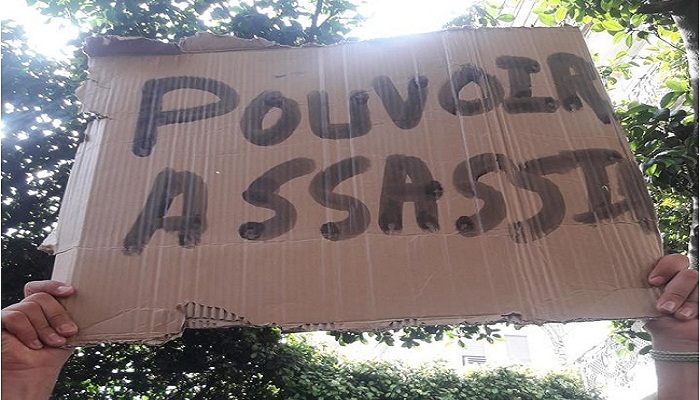 POUVOIR
ASSASSI